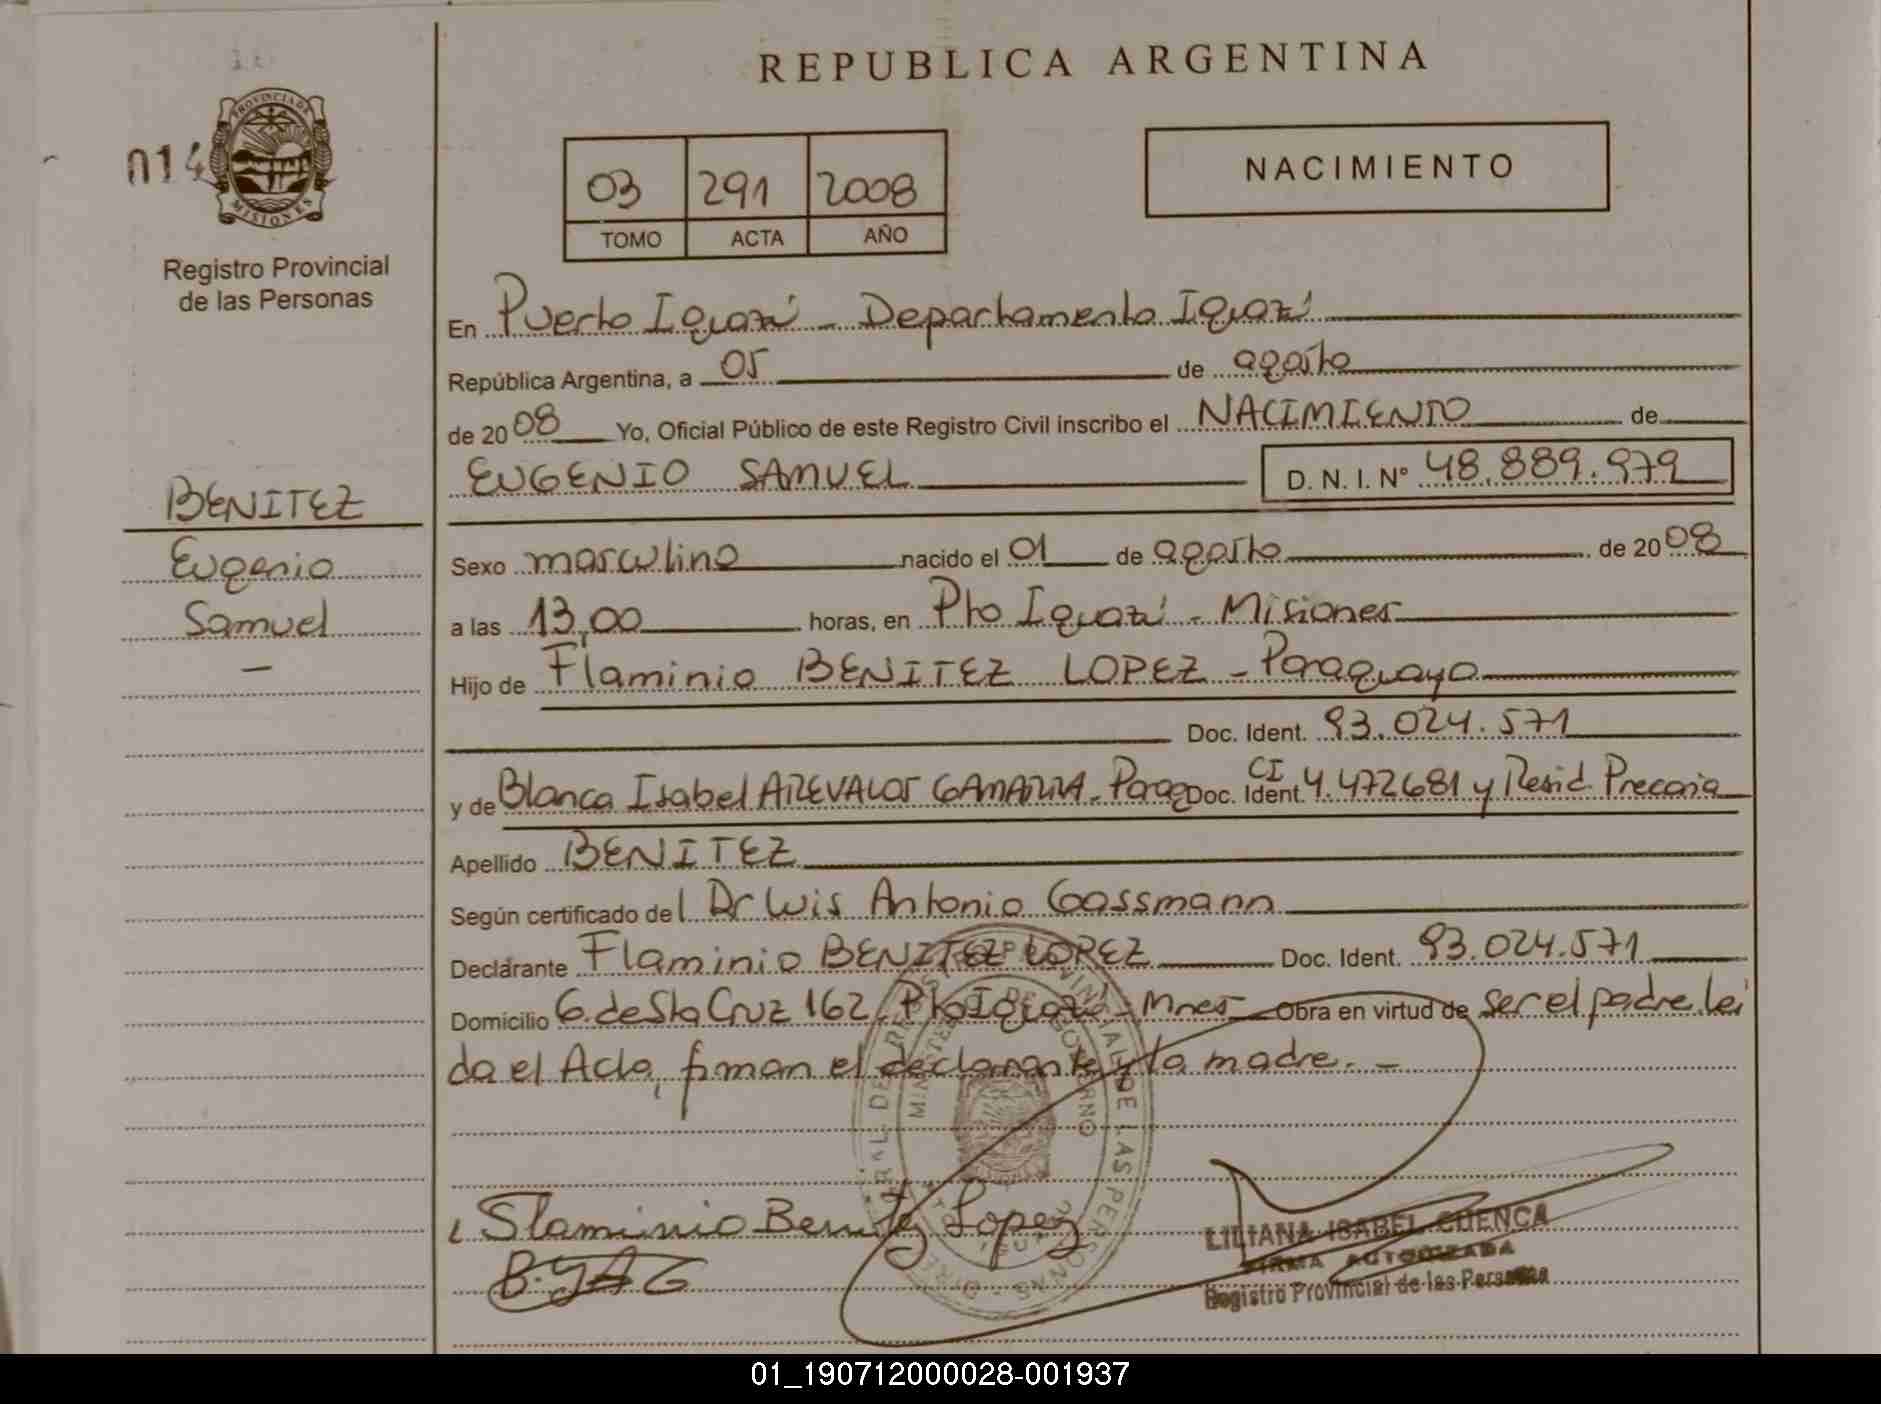 REPUBLICA ARGENTINA
014
PROVINCIA DE
MISIONES
Registro Provincial
de las Personas
03 291 2008
TOMO ACTA AÑO
NACIMIENTO
En Puerto Iguazú - Departamento Iguazú
República Argentina, a 05 de agosto
de 2008 Yo, Oficial Público de este Registro Civil inscribo el NACIMIENTO de
EUGENIO SAMUEL D. N. I. Nº 48.889.979
BENITEZ
Eugenio
Samuel
Sexo masculino nacido el 01 de agosto de 2008
a las 13,00 horas, en Pto Iguazú - Misiones
Hijo de Flaminio BENITEZ LOPEZ - Paraguayo
Doc. Ident. 93.024.571
y de Blanca Isabel AREVALOS GAMARRA - Parag Doc. Ident. CI 4.472681 y Resid. Precaria
Apellido BENITEZ
Según certificado del Dr Luis Antonio Gassmann
Declarante Flaminio BENITEZ LOPEZ Doc. Ident. 93.024.571
Domicilio G. de Sta Cruz 162, Pto Iguazú - Mnes Obra en virtud de ser el padre. Lei
da el Acta, firman el declarante y la madre. -
Flaminio Benitez Lopez
B. Y A G
LILIANA ISABEL CUENCA
FIRMA AUTORIZADA
Registro Provincial de las Personas
01_190712000028-001937